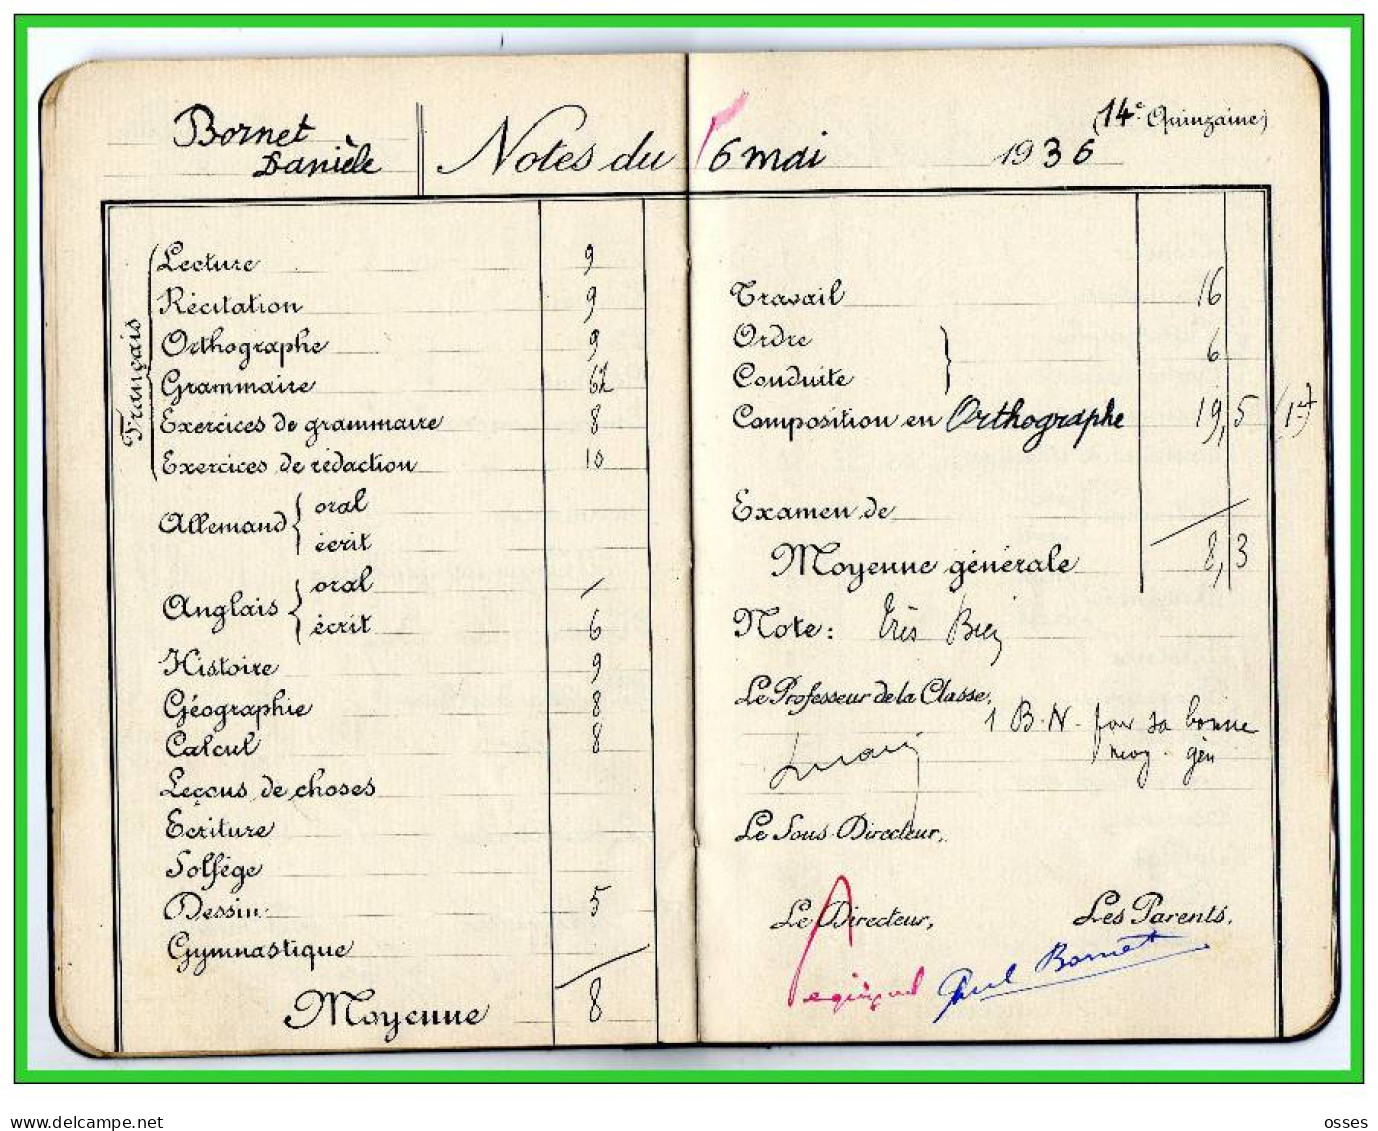 Bornet
Danièle
Notes du 6 mai 1936
(14e Quinzaine)
Français
Lecture 9
Récitation 9
Orthographe 9
Grammaire 6½
Exercices de grammaire 8
Exercices de rédaction 10
Allemand { oral
écrit
Anglais { oral /
écrit 6
Histoire 9
Géographie 8
Calcul 8
Leçons de choses
Ecriture
Solfège
Dessin 5
Gymnastique
Moyenne 8
Travail 16
Ordre
Conduite } 6
Composition en Orthographe 19,5 (1re)
Examen de
Moyenne générale 8,3
Note: Très Bien
Le Professeur de la Classe,
1 B.N. pour sa bonne
moy. gén
Le Sous Directeur,
Le Directeur,
Les Parents.
Paul Bornet
delcampe.net
osses